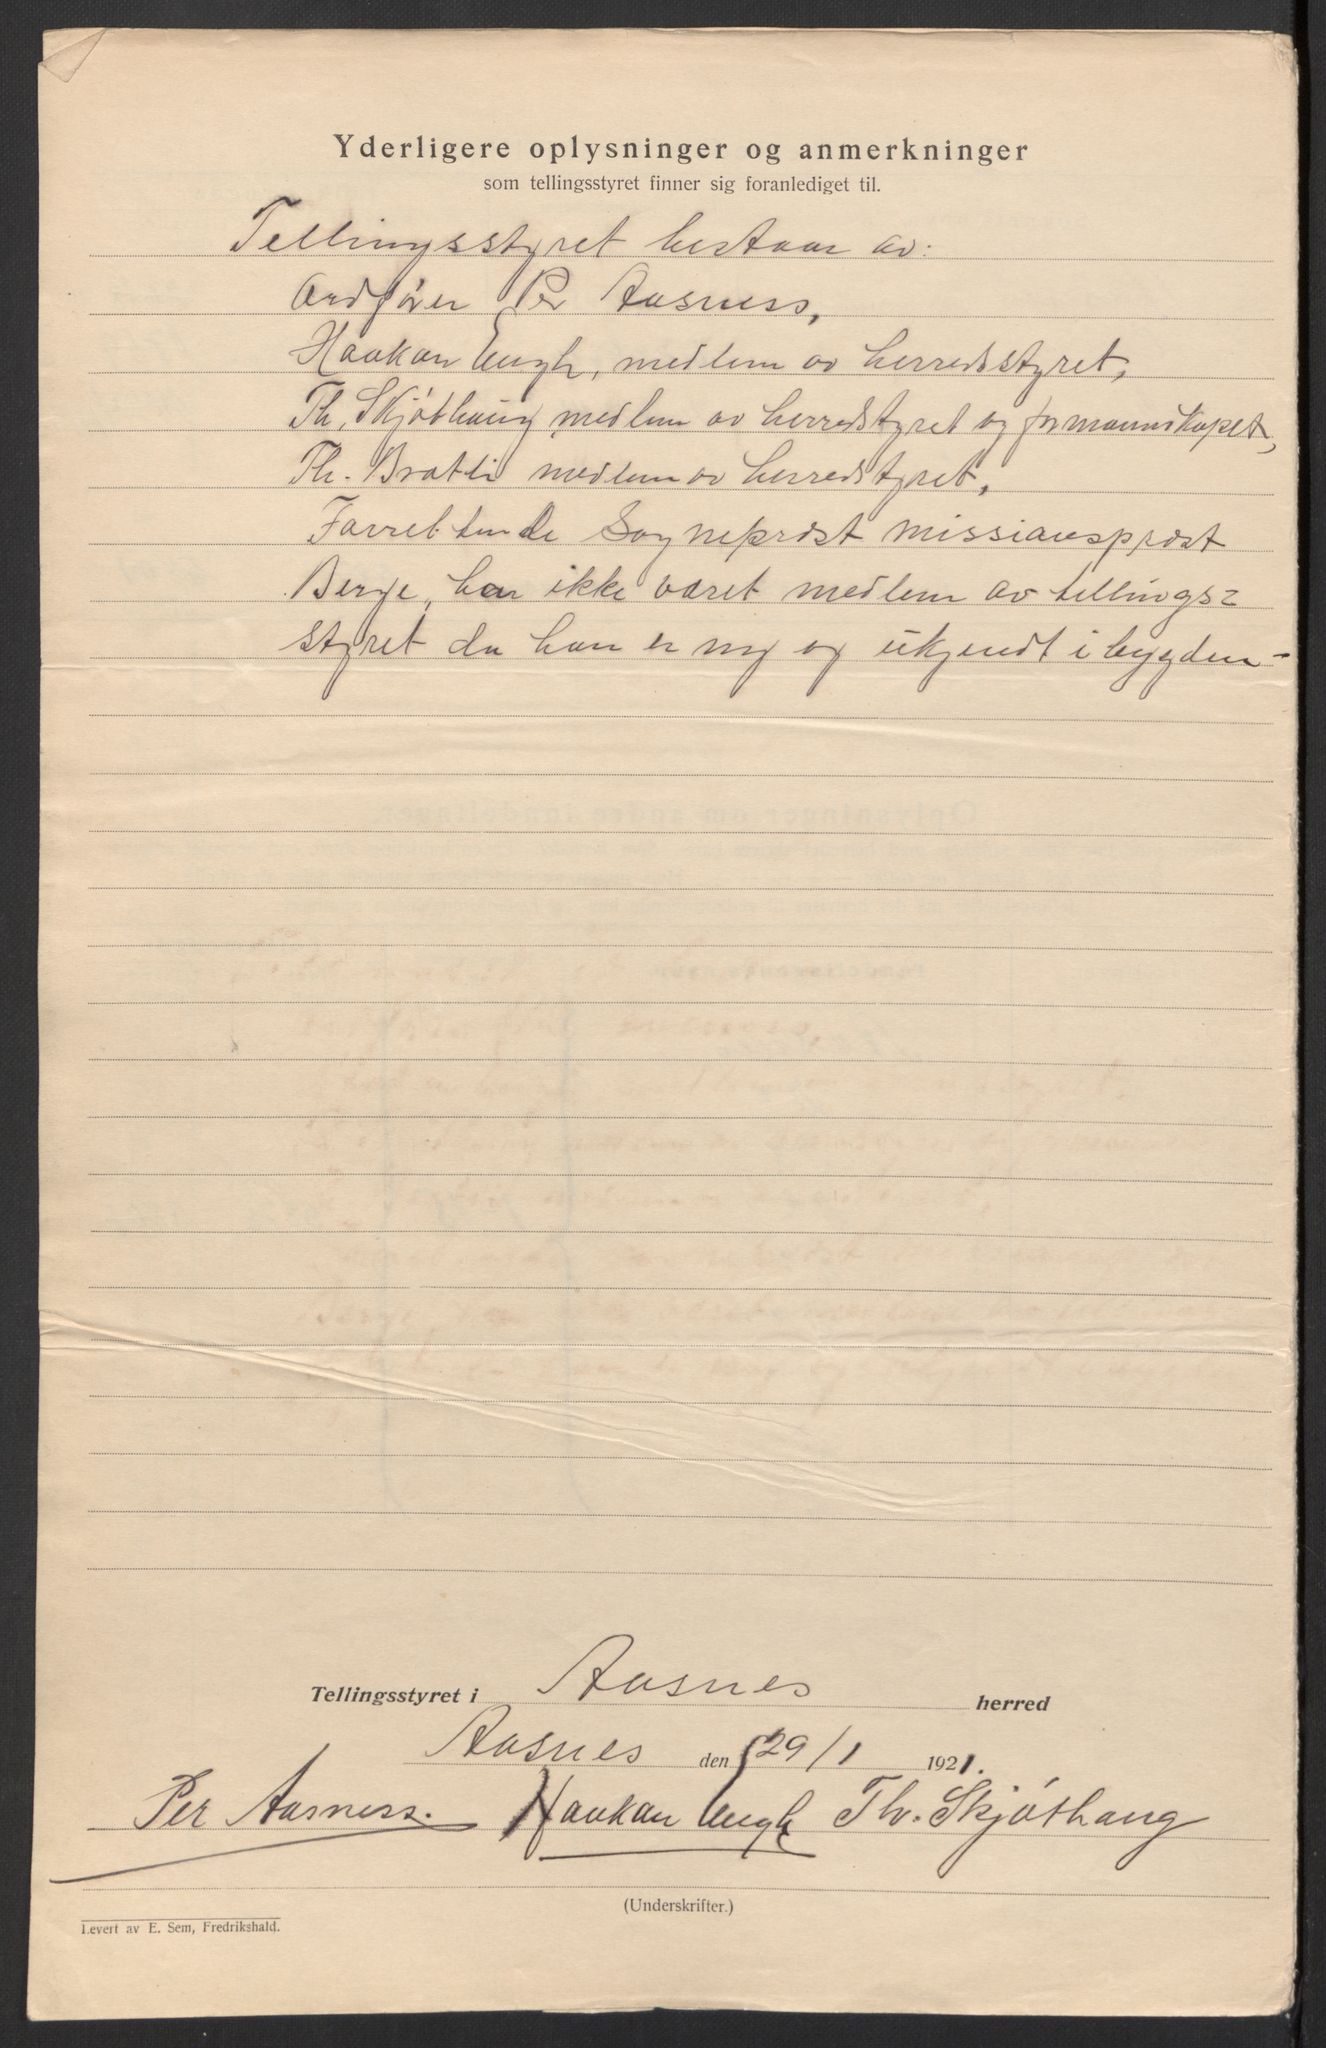 Yderligere oplysninger og anmerkninger
som tellingsstyret finner sig foranlediget til.
Tellingsstyret bestaar av:
Ordfører Per Aasness,
Haakon Engh, medlem av herredsstyret,
Th. Skjøthaug medlem av herredstyret og formannskapet,
Th. Bratli medlem av herredstyret,
Forrettende Sogneprest missionsprest
Berge, har ikke været medlem av tellings=
styret da han er ny og ukjendt i bygden –
Tellingsstyret i Aasnes herred
Aasnes den 29/1 1921.
Per Aasness. Haakon Engh Th. Skjøthaug
(Underskrifter.)
Levert av E. Sem, Fredrikshald.